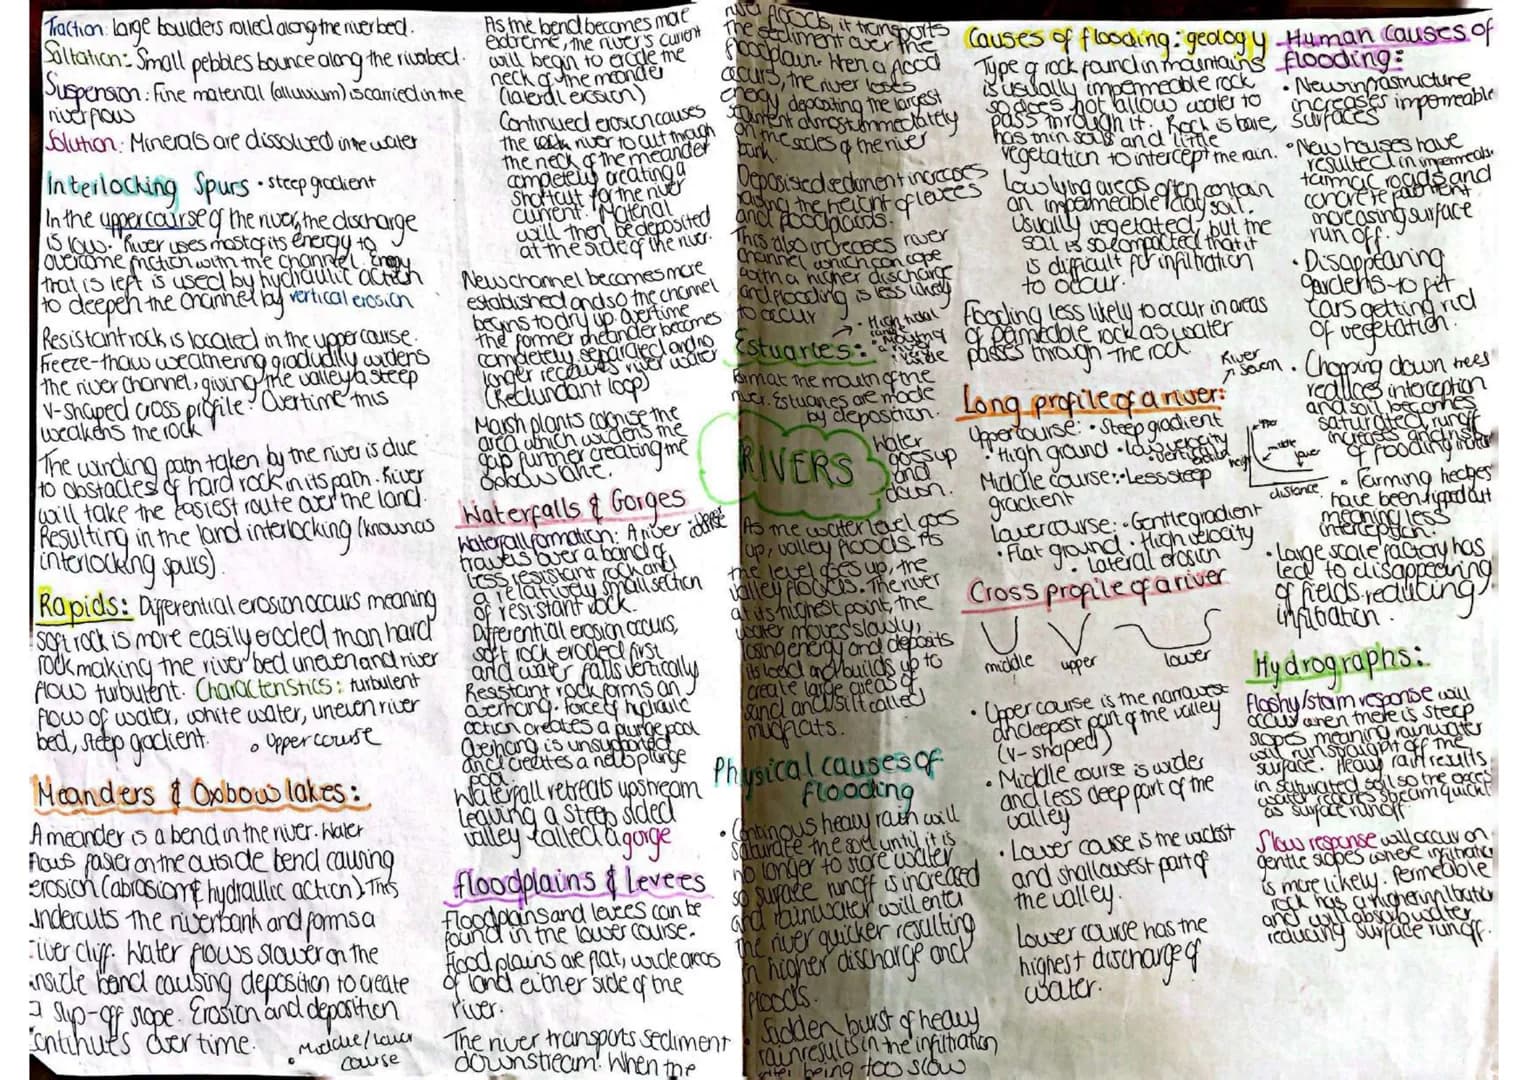 Traction: large boulders rolled along the river bed.
Saltation: Small pebbles bounce along the riverbed.
Suspension: Fine material (alluvium) is carried in the
river flow
Solution: Minerals are dissolved in the water
Interlocking Spurs • steep gradient
In the upper course of the river, the discharge
is low. River uses most of its energy to
overcome friction with the channel. Energy
that is left is used by hydraulic action
to deepen the channel by vertical erosion
Resistant rock is located in the upper course.
Freeze-thaw weathering gradually widens
the river channel, giving the valley a steep
V-shaped cross profile. Overtime this
weakens the rock
The winding path taken by the river is due
to obstacles of hard rock in its path. River
will take the easiest route over the land.
Resulting in the land interlocking (known as
interlocking spurs).
Rapids: Differential erosion occurs meaning
soft rock is more easily eroded than hard
rock making the river bed uneven and river
flow turbulent. Characteristics: turbulent
flow of water, white water, uneven river
bed, steep gradient. • Upper course
Meanders & Oxbow lakes:
A meander is a bend in the river. Water
flows faster on the outside bend causing
erosion (abrasion & hydraulic action). This
undercuts the riverbank and forms a
river cliff. Water flows slower on the
inside bend causing deposition to create
a slip-off slope. Erosion and deposition
continues over time.
• Middle/lower
course
As the bend becomes more
extreme, the river's current
will begin to erode the
neck of the meander
(lateral erosion)
Continued erosion causes
the river to cut through
the neck of the meander
completely creating a
shortcut for the river
current. Material
will then be deposited
at the side of the river.
New channel becomes more
established and so the channel
begins to dry up. Overtime
the former meander becomes
completely separated and no
longer receives river water
(redundant loop)
Marsh plants colonise the
area which widens the
gap further creating the
oxbow lake.
Waterfalls & Gorges
Waterfall formation: A river • upper course
travels over a band of
less resistant rock and
a relatively small section
of resistant rock.
Differential erosion occurs,
soft rock eroded first
and water falls vertically
Resistant rock forms an
overhang. Force of hydraulic
action creates a plunge pool
Overhang is unsupported
and creates a new plunge
pool
Waterfall retreats upstream
leaving a steep sided
valley called a gorge
Floodplains & Levees
Floodplains and levees can be
found in the lower course.
Flood plains are flat, wide areas
of land either side of the
river.
The river transports sediment
downstream. When the
river floods, it transports
the sediment over the
floodplain. When a flood
occurs, the river loses
energy, depositing the largest
sediment almost immediately
on the sides of the river
bank.
Deposited sediment increases
the height of levees
and floodplains.
This also increases river
channel which can cope
with a higher discharge
and flooding is less likely
to occur
Estuaries:
• High tidal
range
• Mouth of
the river
Form at the mouth of the
river. Estuaries are made
by deposition.
RIVERS
Water
goes up
and
down.
As the water level goes
up, valley floods. As
the level goes up, the
valley floods. The river
at its highest point, the
water moves slowly,
losing energy and deposits
its load and builds up to
create large areas of
sand and silt called
mudflats.
Physical causes of
flooding
• Continous heavy rain will
saturate the soil until it is
no longer to store water
so surface runoff is increased
and rainwater will enter
the river quicker resulting
in higher discharge and
floods.
• Sudden burst of heavy
rain results in the infiltration
being too slow
Causes of flooding: geology
Type of rock found in mountains
is usually impermeable rock
so does not allow water to
pass through it. Rock is bare,
has thin soils and little
vegetation to intercept the rain.
Low lying areas often contain
an impermeable clay soil.
Usually vegetated, but the
soil is so compacted that it
is difficult for infiltration
to occur.
Flooding less likely to occur in areas
of permeable rock as water
passes through the rock.
River
Severn
Long profile of a river:
Upper course: • Steep gradient
• High ground • low velocity
• Vertical erosion
Middle course: • Less steep
gradient
Lower course: • Gentle gradient
• Flat ground • High velocity
• Lateral erosion
height
upper
middle
lower
distance
Cross profile of a river
middle upper lower
• Upper course is the narrowest
and deepest part of the valley
(v-shaped)
• Middle course is wider
and less deep part of the
valley
• Lower course is the widest
and shallowest part of
the valley.
Lower course has the
highest discharge of
water.
Human causes of
flooding:
• New infrastructure
increases impermeable
surfaces
• New houses have
resulted in impermeable
tarmac roads and
concrete pavement
increasing surface
run off.
• Disappearing
gardens to fit
cars getting rid
of vegetation.
• Chopping down trees
reduces interception
and soil becomes
saturated, runoff
increases and risk
of flooding higher
• Farming hedges
have been ripped out
meaning less
interception.
• Large scale factory has
lead to disappearing
of fields reducing
infiltration.
Hydrographs:
Flashy/storm response will
occur when there is steep
slopes meaning rainwater
will run straight off the
surface. Heavy rain results
in saturated soil so the excess
water reaches stream quickly
as surface runoff
Slow response will occur on
gentle slopes where infiltration
is more likely. Permeable
rock has a higher infiltration
and will absorb water
reducing surface runoff.